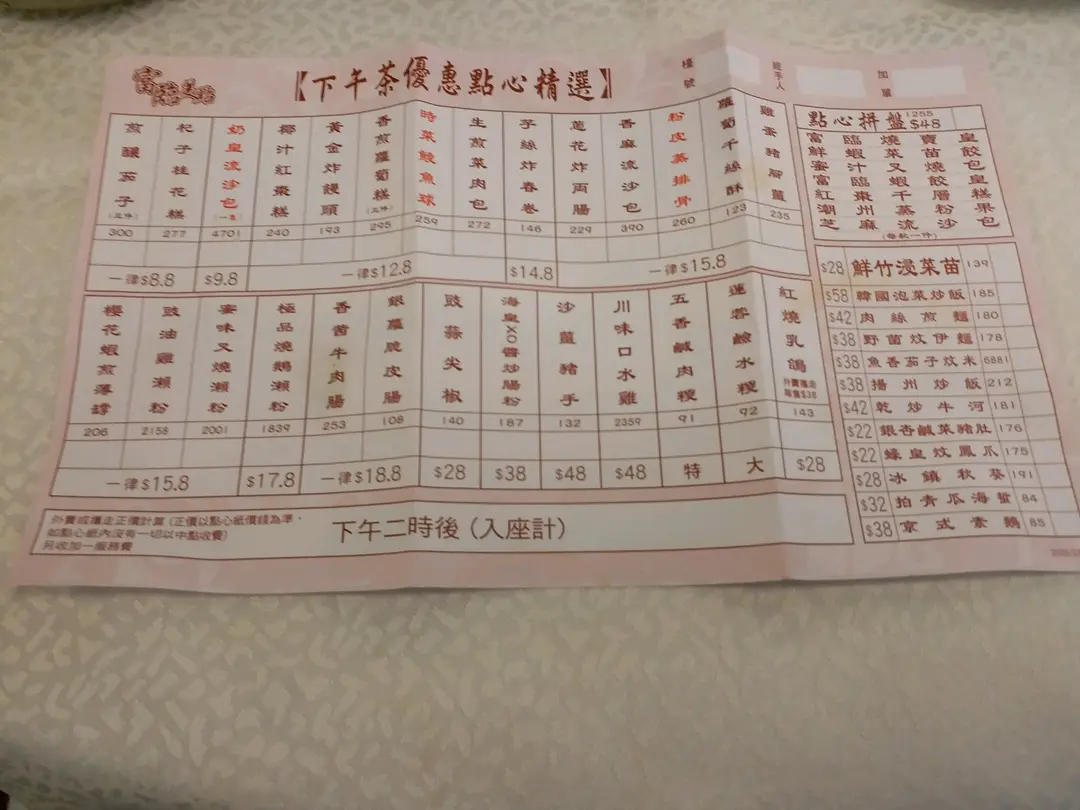 富臨美點
【下午茶優惠點心精選】
檯號
經手人
加單
煎釀茄子(三件) 300
杞子桂花糕 277
奶皇流沙包(一隻) 4701
椰汁紅棗糕 240
黃金炸饅頭 193
香煎蘿蔔糕(三件) 295
時菜鯪魚球 259
生煎菜肉包 272
芋絲炸春卷 146
蔥花炸両腸 229
香麻流沙包 390
粉皮蒸排骨 260
蘿蔔千絲酥 123
雞蛋豬腳薑 235
一律$8.8
$9.8
一律$12.8
$14.8
一律$15.8
櫻花蝦煎薄罉 206
豉油雞瀨粉 2158
蜜味叉燒瀨粉 2001
極品燒鵝瀨粉 1839
香茜牛肉腸 253
銀蘿脆皮腸 108
豉蒜尖椒 140
海皇XO醬炒腸粉 187
沙薑豬手 132
川味口水雞 2359
五香鹹肉粳 91
蓮蓉鹼水粳 92
紅燒乳鴿 外賣攜走每個$38 143
一律$15.8
$17.8
一律$18.8
$28
$38
$48
$48
特
大
$28
外賣或攜走正價計算(正價以點心紙價錢為準,
如點心紙內沒有一切以中點收費)
另收加一服務費
下午二時後(入座計)
點心拼盤 1255 $48
富臨燒賣皇
鮮蝦菜苗餃
蜜汁叉燒包
富臨蝦餃皇
紅棗千層糕
潮州蒸粉果
芝麻流沙包
(每款一件)
$28 鮮竹浸菜苗 139
$58 韓國泡菜炒飯 185
$42 肉絲煎麵 180
$38 野菌炆伊麵 178
$38 魚香茄子炆米 6881
$38 揚州炒飯 212
$42 乾炒牛河 181
$22 銀杏鹹菜豬肚 176
$22 蠔皇炆鳳爪 175
$28 冰鎮秋葵 191
$32 拍青瓜海蜇 84
$38 京式素鵝 85